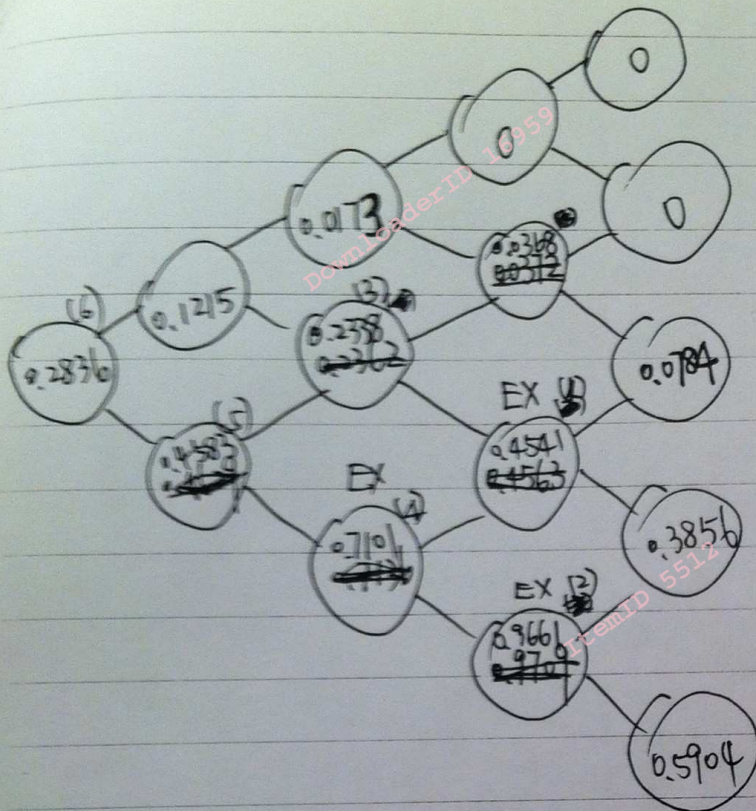 0
0
0.0173
0
0.0368
0.0312
(6)
0.2836
0.1215
(3)
0.2338
0.2362
0.0784
(5)
0.4583
EX
0.4541
0.4563
EX
(4)
0.7101
0.3856
EX (2)
0.9661
0.9709
0.5904
DownloaderID 16959
ItemID 5512